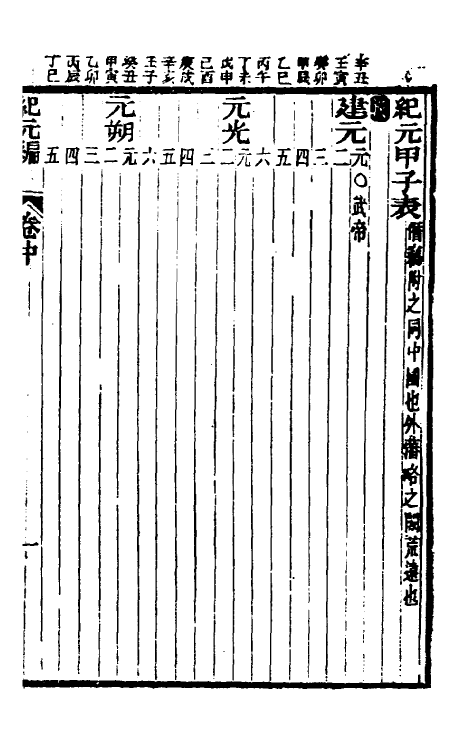 紀元甲子表 僭竊附之同中國也外藩略之闕荒遠也
辛丑 建元元○武帝
壬寅 二
癸卯 三
甲辰 四
乙巳 五
丙午 六
丁未 元光元
戊申 二
己酉 三
庚戌 四
辛亥 五
壬子 六
癸丑 元朔元
甲寅 二
乙卯 三
丙辰 四
丁巳 五
紀元編 卷中 一